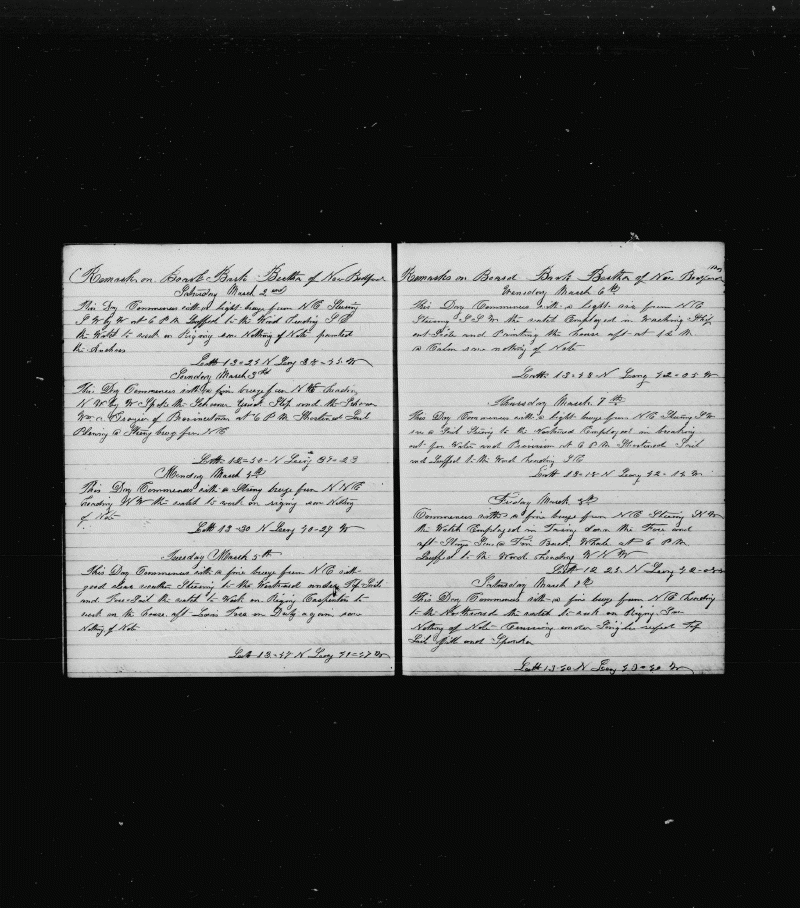 Remarks on Board Bark Bertha of New Bedford
Saturday March 2nd
This Day Commences with a light breeze from N E Stearing
S W by W at 6 P M Luffed to the Wind heading S E
the Watch to work on Riging saw Nothing of Note painted
the Anchors
Latt 13=25 N Long
Sunday March 3rd
This Day Commences with a fine breeze from N E heading
N W by W Spoke the Schooner Ship and the Schooner
Wm A Grozier of Provincetown at 6 P M Shortened Sail
a Strong breeze from N E
Latt 12=50 N Long
Monday March 4th
This Day Commences with a Strong breeze from N N E
heading N W the watch to work on riging saw Nothing
of Note
Latt 13=30 N Long 40=27 W
Tuesday March 5th
This Day Commences with a fine breeze from N E with
good clear weather Stearing to the Westward under Top Sail
and Fore Sail the watch to Work on Riging Carpenter to
work on the house aft on Duty again saw
Nothing of Note
Latt 13=47 N Long 41=47 W
Remarks on Board Bark Bertha of New Bedford
Wensday March 6th
This Day Commences with a light air from N E
Stearing S S W the watch Employed in Washing Ship
out Side and Painting the house aft at 12 M
a Calm saw nothing of Note
Latt 13=48 N Long 42=05 W
Thursday March 7th
This Day Commences with a light breeze from N E Stearing S W
saw a Sail Stearing to the Westward Employed in breaking
out for Water and Provision at 6 P M Shortened Sail
and Luffed to the Wind heading S E
Latt 13=18 N Long 42=14 W
Friday March 8th
Commences with a fine breeze from N E Stearing N W
the Watch Employed in down the Fore and
aft Stays Saw a Fin Back Whale at 6 P M
Luffed to the Wind heading W N W
Latt 12 25 N Long
Saturday March 9th
This Day Commences with a fine breeze from N E heading
to the Northward the watch to work on Riging Saw
Nothing of Note Cruising under Single reefed Top
Sail Jib and Spanker
Latt 13=40 N Long 43=40 W